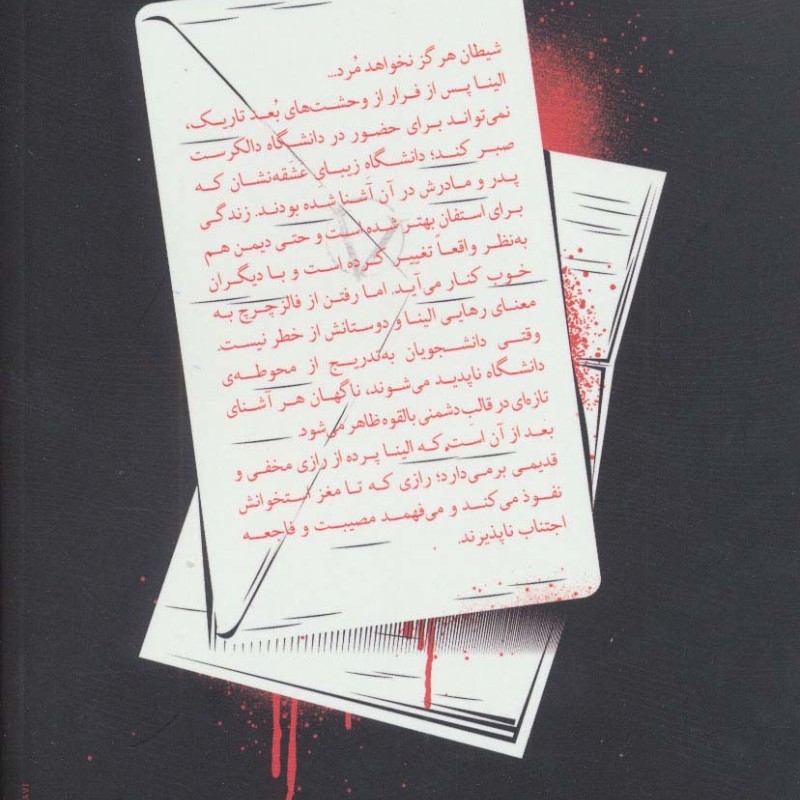 شیطان هرگز نخواهد مُرد...
الینا پس از فرار از وحشت‌های بُعد تاریک،
نمی‌تواند برای حضور در دانشگاه دالکرست
صبر کند؛ دانشگاهِ زیبایِ عَشَقه‌نشان که
پدر و مادرش در آن آشنا شده بودند. زندگی
برای استفان بهتر شده است و حتی دیمن هم
به‌نظر واقعاً تغییر کرده است و با دیگران
خوب کنار می‌آید. اما رفتن از فالزچرچ به
معنای رهایی الینا و دوستانش از خطر نیست.
وقتی دانشجویان به‌تدریج از محوطه‌ی
دانشگاه ناپدید می‌شوند، ناگهان هر آشنای
تازه‌ای در قالبِ دشمنی بالقوه ظاهر می‌شود.
بعد از آن است که الینا پرده از رازی مخفی و
قدیمی برمی‌دارد؛ رازی که تا مغز استخوانش
نفوذ می‌کند و می‌فهمد مصیبت و فاجعه
اجتناب ناپذیرند.